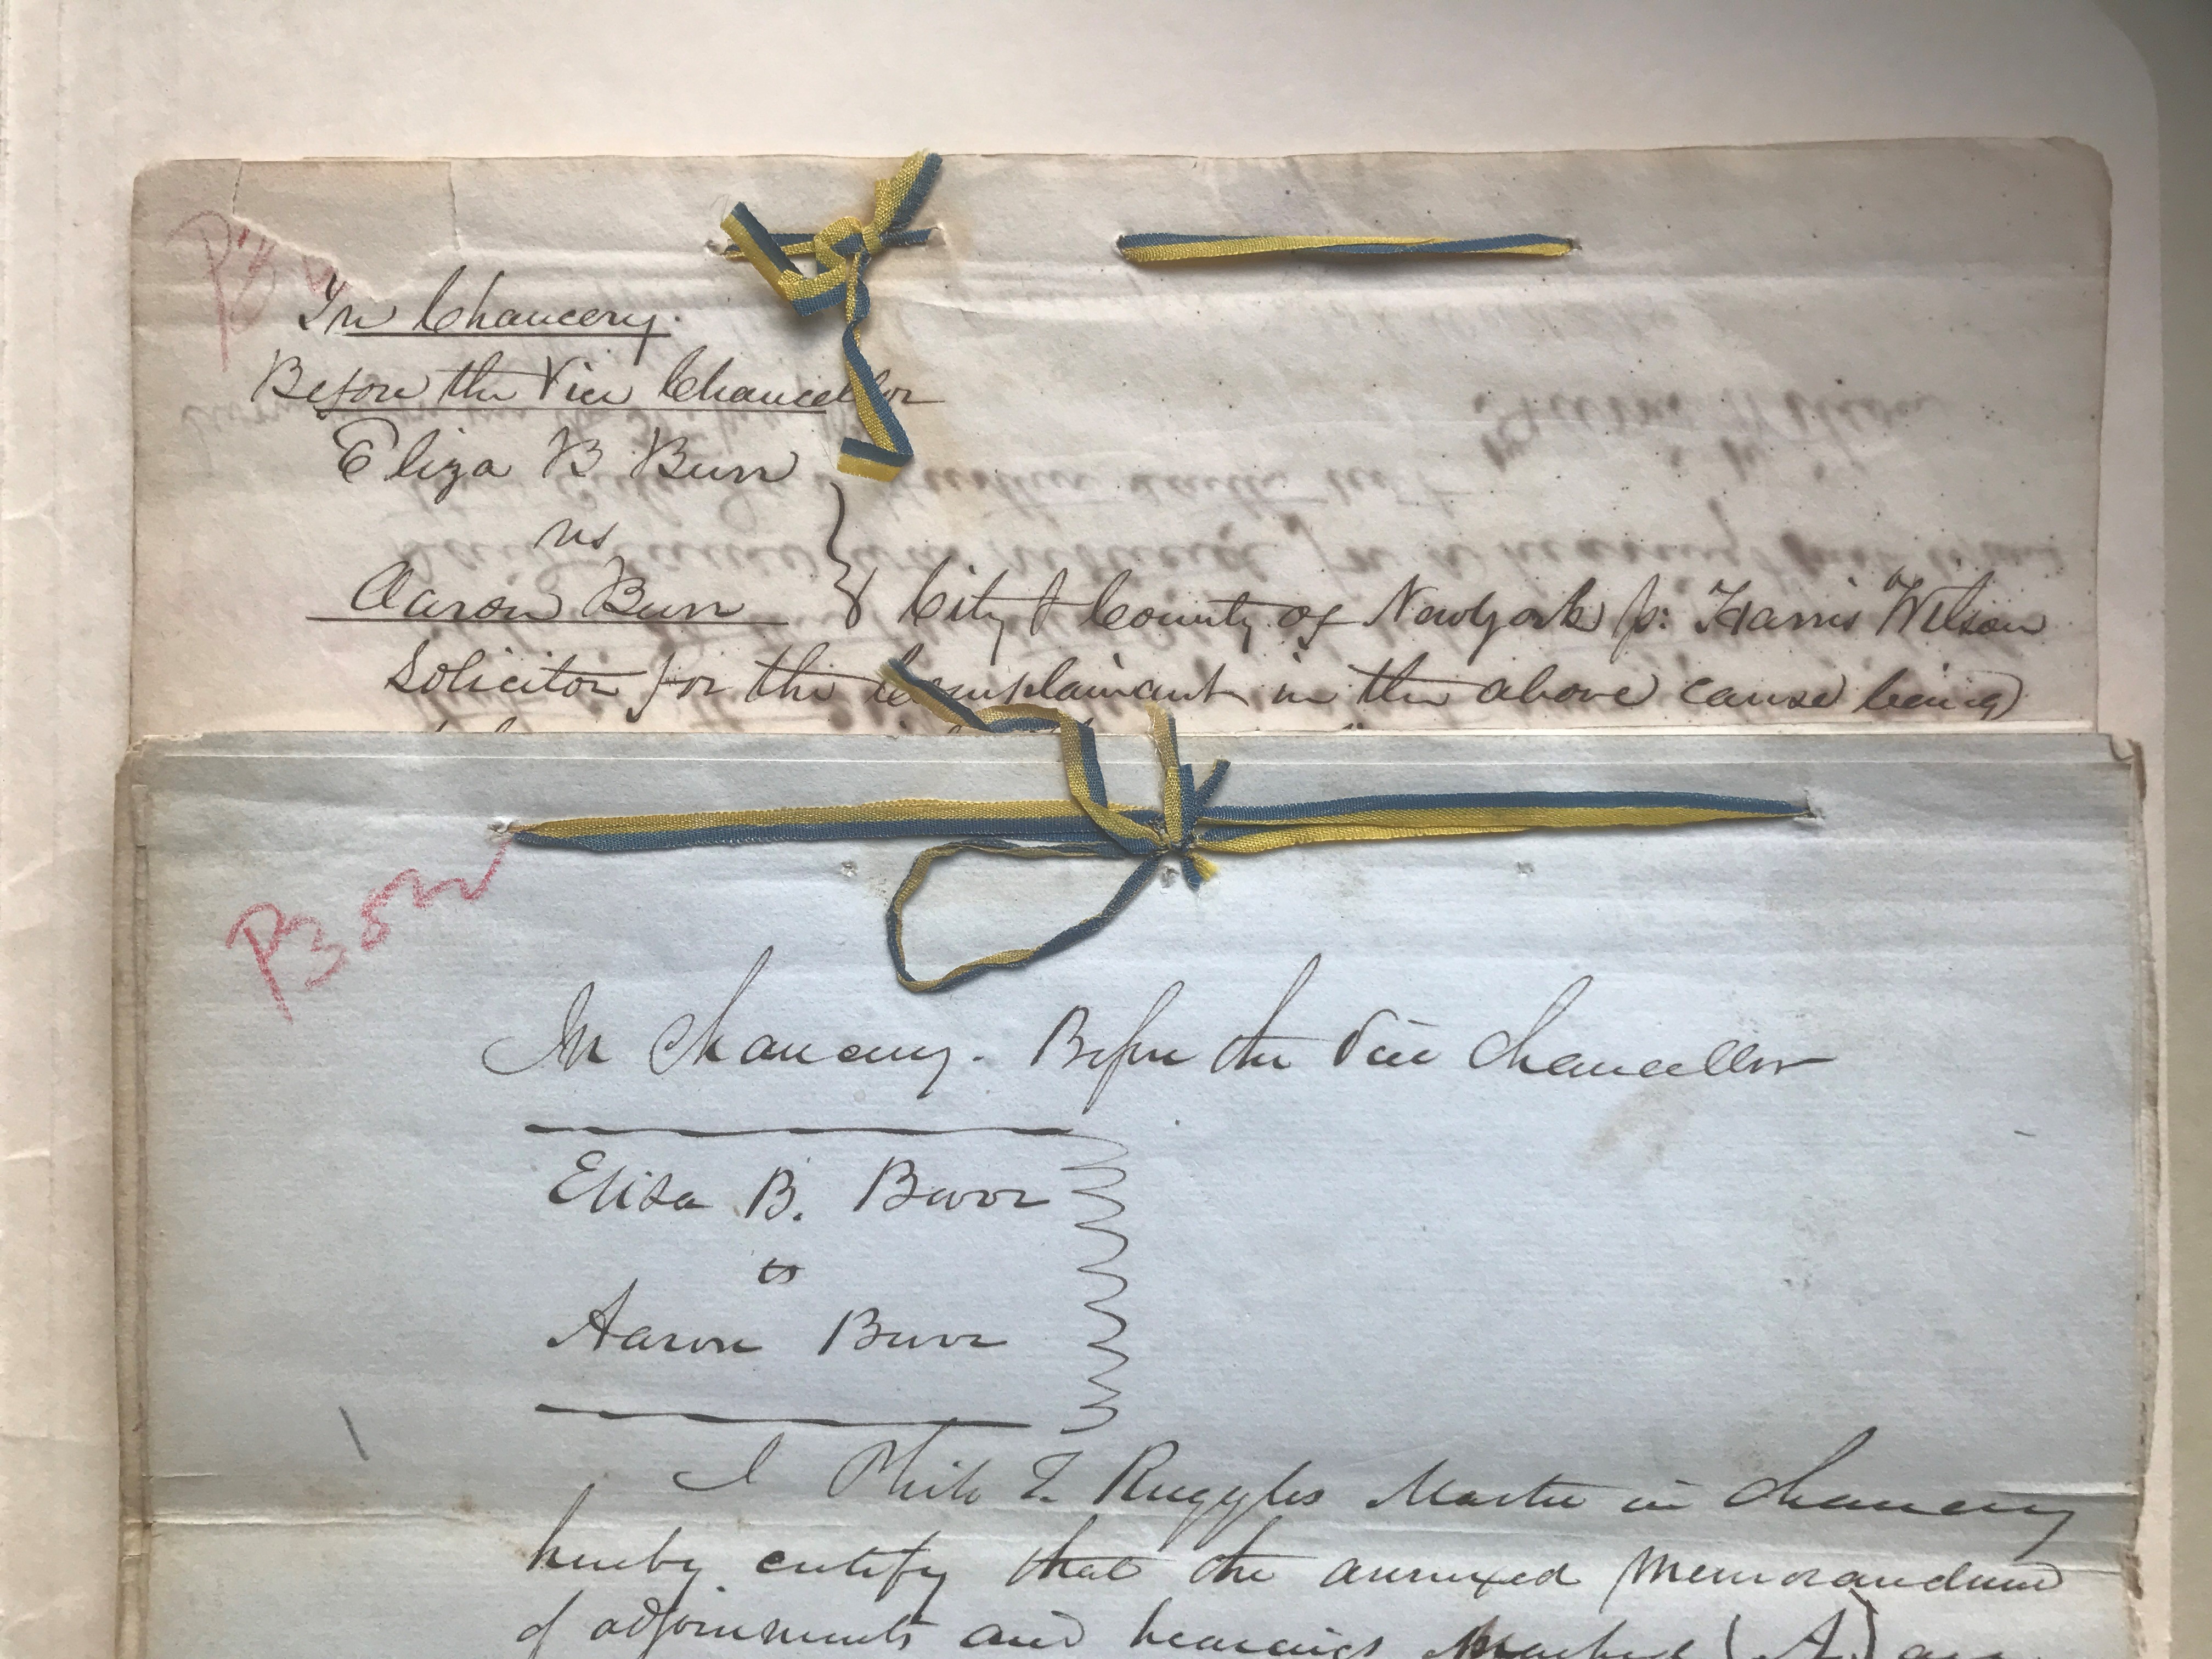 In Chancery.
Before the Vice Chancellor
Eliza B Burr
vs
Aaron Burr } City & County of New York ss: Harris Wilson
Solicitor for the Complainant in the above cause being
In Chancery. Before the Vice Chancellor
Eliza B. Burr
vs
Aaron Burr
I Philo T. Ruggles Master in Chancery
hereby certify that the annexed memorandum
of adjournments and hearings Marked (A.) are